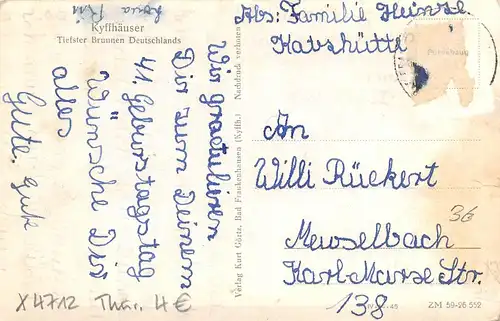 Kyffhäuser
Tiefster Brunnen Deutschlands
Wir gractulieren
Dir zum Deinem
41. Geburtstagstag
Wünsche Dir
alles
Gute.
Verlag Kurt Gärtz, Bad Frankenhausen (Kyffh.) Nachdruck verboten
Abs: Familie Heinze
Katzhütte
An
Willi Rückert
Meuselbach
Karl-Marx Str.
138
36
ZM 59-26 552
X4712 Thür. 4 €